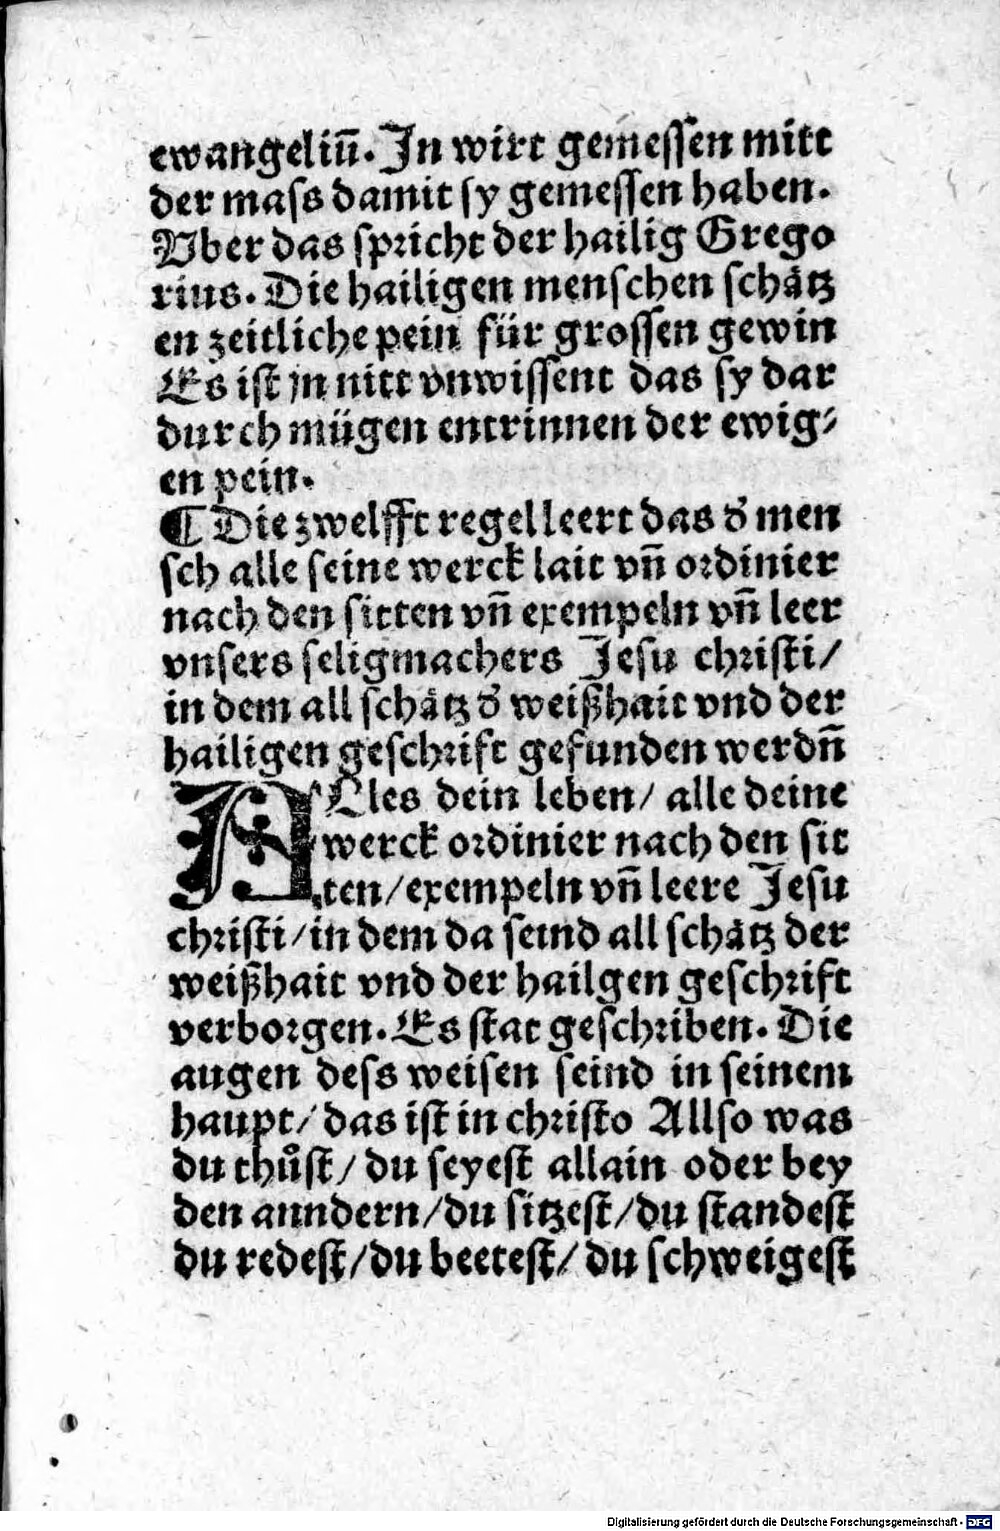 ewangeliū̄. In wirt gemessen mitt
der mass damit sy gemessen haben.
Vber das spricht der hailig Grego
rius. Die hailigen menschen schåtz
en zeitliche pein für grossen gewin
Es ist jn nitt vnwissent das sy dar
durch mügen entrinnen der ewig⸗
en pein.
¶ Die zwelfft regel leert das d' men
sch alle seine werck lait vn̄ ordinier
nach den sitten vn̄ exempeln vn̄ leer
vnsers seligmachers Jesu christi/
in dem all schåtz d' weißhait vnd der
hailigen geschrift gefunden werdn̄
ALles dein leben/ alle deine
werck ordinier nach den sit
ten/exempeln vn̄ leere Jesu
christi/in dem da seind all schåtz der
weißhait vnd der hailgen geschrift
verborgen. Es stat geschriben. Die
augen dess weisen seind in seinem
haupt/ das ist in christo Allso was
du thůst/ du seyest allain oder bey
den anndern/du sitzest/du standest
du redest/du beetest/ du schweigest
Digitalisierung gefördert durch die Deutsche Forschungsgemeinschaft - DFG